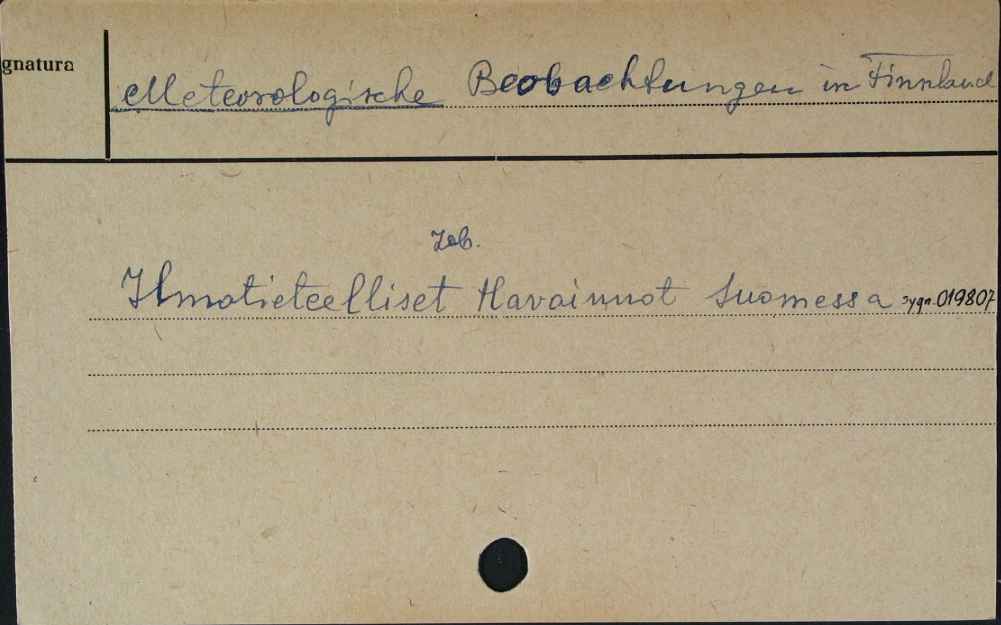 gnatura
Meteorologische Beobachtungen in Finnland
Zob.
Ilmatieteelliset Havainnot Suomessa sygn. 019807